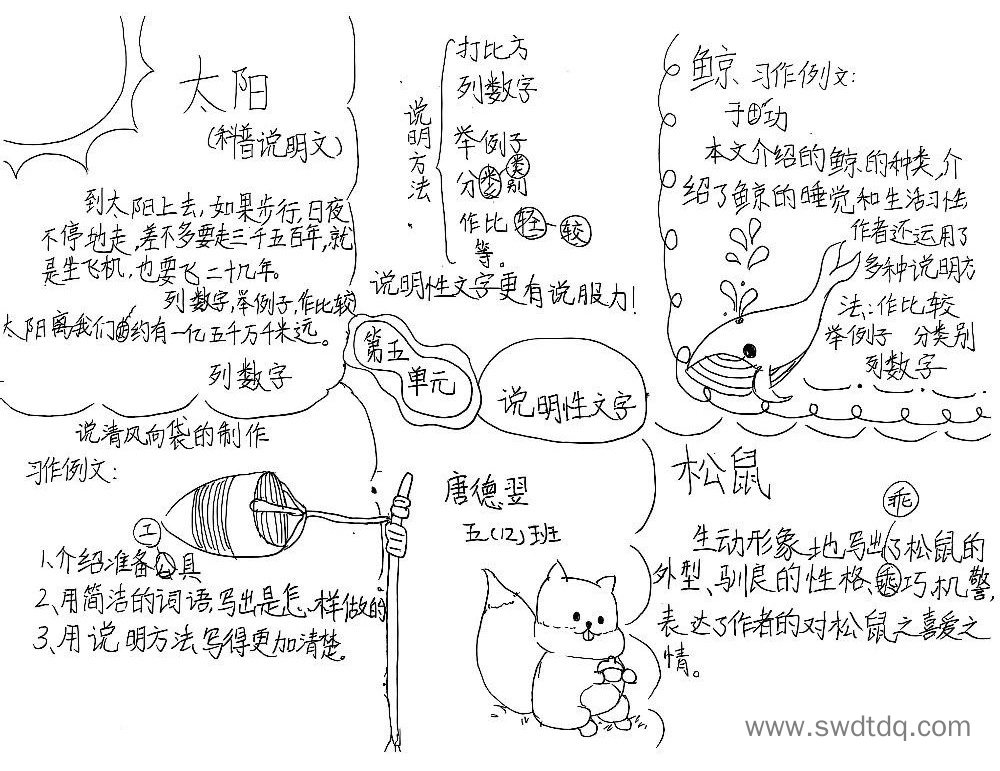 太阳
(科普说明文)
到太阳上去,如果步行,日夜
不停地走,差不多要走三千五百年,就
是坐飞机,也要飞二十几年。
列数字,举例子,作比较
太阳离我们约有一亿五千万千米远。
列数字
说明方法
打比方
列数字
举例子
分类别
作比较
等。
说明性文字更有说服力!
鲸 习作例文:
本文介绍的鲸的种类,介
绍了鲸的睡觉和生活习性
作者还运用了
多种说明方
法:作比较
举例子 分类别
列数字
第五
单元
说明性文字
说清风向袋的制作
习作例文:
工
1、介绍准备具
2、用简洁的词语,写出是怎、样做的
3、用说明方法写得更加清楚。
唐德翌
五(12)班
松鼠
乖
生动形象地写出了松鼠的
外型、驯良的性格、乖巧机警,
表达了作者的对松鼠之喜爱之
情。
www.swdtdq.com